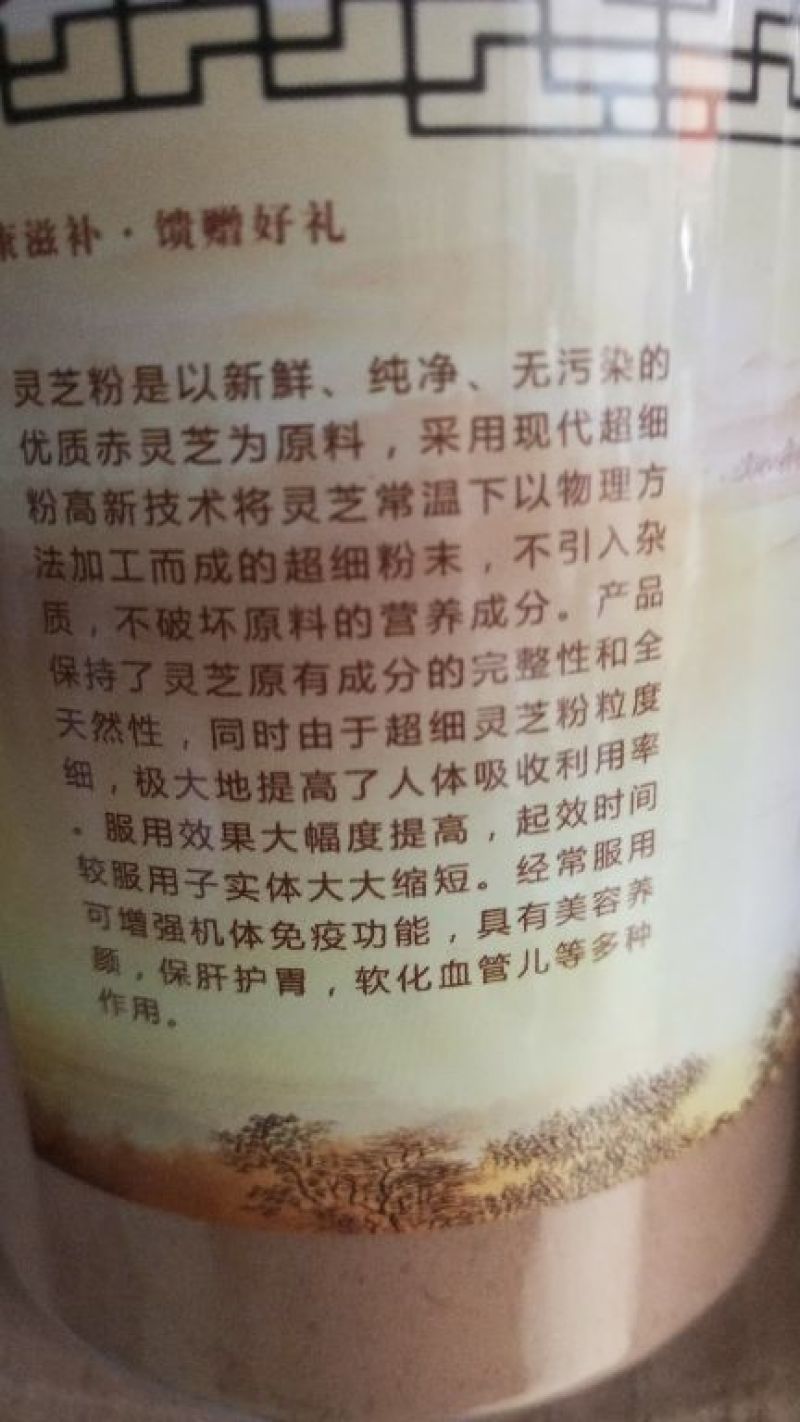 康滋补·馈赠好礼
灵芝粉是以新鲜、纯净、无污染的
优质赤灵芝为原料，采用现代超细
粉高新技术将灵芝常温下以物理方
法加工而成的超细粉末，不引入杂
质，不破坏原料的营养成分。产品
保持了灵芝原有成分的完整性和全
天然性，同时由于超细灵芝粉粒度
细，极大地提高了人体吸收利用率
。服用效果大幅度提高，起效时间
较服用子实体大大缩短。经常服用
可增强机体免疫功能，具有美容养
颜，保肝护胃，软化血管儿等多种
作用。